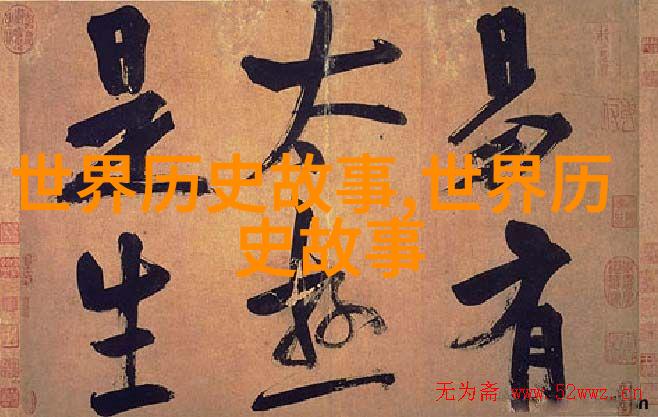 易有
太極
是生
世界历史故事,世界历
史故事
无为斋 www.52wwz.cn